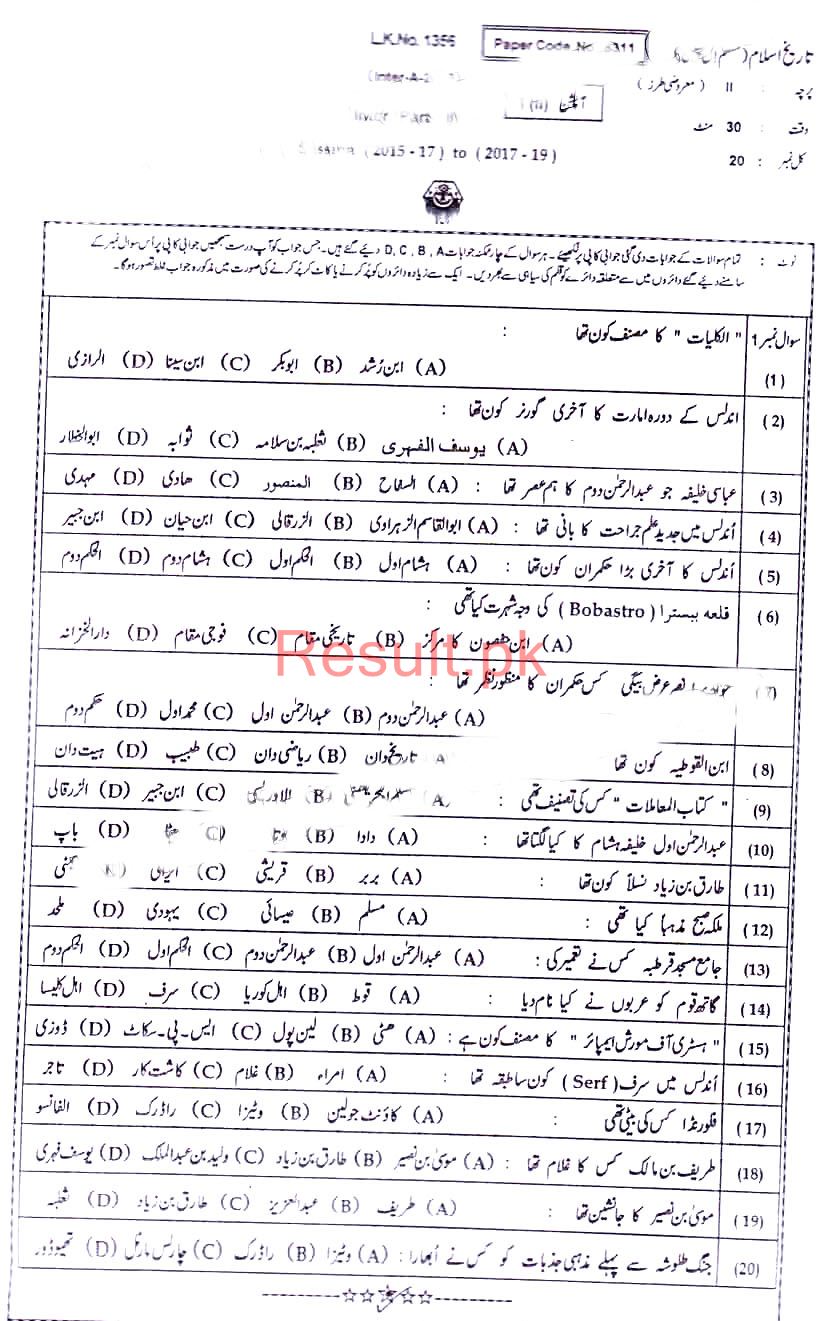 L.K.No. 1356
Paper Code No. 8311
تاریخ اسلام
پرچہ : II (معروضی طرز)
وقت : 30 منٹ
( 2015 - 17 ) to ( 2017 - 19 )
کل نمبر : 20
نوٹ : تمام سوالات کے جوابات دی گئی جوابی کاپی پر لکھیئے۔ ہر سوال کے چار ممکنہ جوابات D , C , B , A دیئے گئے ہیں۔ جس جواب کو آپ درست سمجھیں جوابی کاپی پر اُس سوال نمبر کے
سامنے دیئے گئے دائروں میں سے متعلقہ دائرے کو قلم کی سیاہی سے بھر دیں۔ ایک سے زیادہ دائروں کو پُر کرنے یا کاٹ کر پُر کرنے کی صورت میں مذکورہ جواب غلط تصور ہوگا۔
سوال نمبر 1 " الکلیات " کا مصنف کون تھا :
(1) (A) ابن رُشد (B) ابوبکر (C) ابن سینا (D) الرازی
(2) اندلس کے دورہ امارت کا آخری گورنر کون تھا :
(A) یوسف الفہری (B) ثعلبہ بن سلامہ (C) ثوابہ (D) ابوالخطار
(3) عباسی خلیفہ جو عبدالرحمٰن دوم کا ہم عصر تھا : (A) السفاح (B) المنصور (C) ھادی (D) مہدی
(4) اُندلس میں جدید علم جراحت کا بانی تھا : (A) ابوالقاسم الزہراوی (B) الزرقالی (C) ابن حیان (D) ابن جبیر
(5) اُندلس کا آخری بڑا حکمران کون تھا : (A) ہشام اول (B) الحکم اول (C) ہشام دوم (D) الحکم دوم
(6) قلعہ ببسترا ( Bobastro ) کی وجہ شہرت کیا تھی :
(A) ابن حفصون کا مرکز (B) تاریخی مقام (C) فوجی مقام (D) دارالخزانہ
Result.pk
(7) کس حکمران کا منظور نظر تھا :
(A) عبدالرحمٰن دوم (B) عبدالرحمٰن اول (C) محمد اول (D) حکم دوم
(8) ابن القوطیہ کون تھا (A) تاریخ دان (B) ریاضی دان (C) طبیب (D) ہیت دان
(9) " کتاب المعاملات " کس کی تصنیف تھی : (A) (B) الادریسی (C) ابن جبیر (D) الزرقالی
(10) عبدالرحمٰن اول خلیفہ ہشام کا کیا لگتا تھا : (A) دادا (B) پوتا (C) بیٹا (D) باپ
(11) طارق بن زیاد نسلاً کون تھا : (A) بربر (B) قریشی (C) ایرانی
(12) ملکہ صبح مذہباً کیا تھی : (A) مسلم (B) عیسائی (C) یہودی (D) ملحد
(13) جامع مسجد قرطبہ کس نے تعمیر کی : (A) عبدالرحمٰن اول (B) عبدالرحمٰن دوم (C) الحکم اول (D) الحکم دوم
(14) گاتھ قوم کو عربوں نے کیا نام دیا : (A) قوط (B) اہل کوریا (C) سرف (D) اہل کلیسا
(15) " ہسٹری آف مورش ایمپائر " کا مصنف کون ہے : (A) حتی (B) لین پول (C) ایس۔پی۔سکاٹ (D) ڈوزی
(16) اُندلس میں سرف ( Serf ) کون سا طبقہ تھا : (A) امراء (B) غلام (C) کاشت کار (D) تاجر
(17) فلورنڈا کس کی بیٹی تھی : (A) کاؤنٹ جولین (B) وٹیزا (C) راڈرک (D) الفانسو
(18) طریف بن مالک کس کا غلام تھا : (A) موسیٰ بن نصیر (B) طارق بن زیاد (C) ولید بن عبدالملک (D) یوسف فہری
(19) موسیٰ بن نصیر کا جانشین تھا : (A) طریف (B) عبدالعزیز (C) طارق بن زیاد (D) ثعلبہ
(20) جنگ طلوشہ سے پہلے مذہبی جذبات کو کس نے اُبھارا : (A) وٹیزا (B) راڈرک (C) چارلس مارٹل (D) تھیوڈور